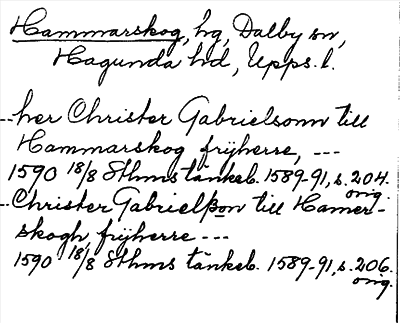 Hammarskog, hg, Dalby sn,
Hagunda hd, Upps. l.
--her Christer Gabrielsonn till
Hammarskog frijherre, ---
1590 18/8 Sthms tänkeb. 1589-91, s. 204.
orig.
--Christer Gabrielßon till Hamer-
skogh, frijherre ---
1590 18/8 Sthms tänkeb. 1589-91, s. 206.
orig.